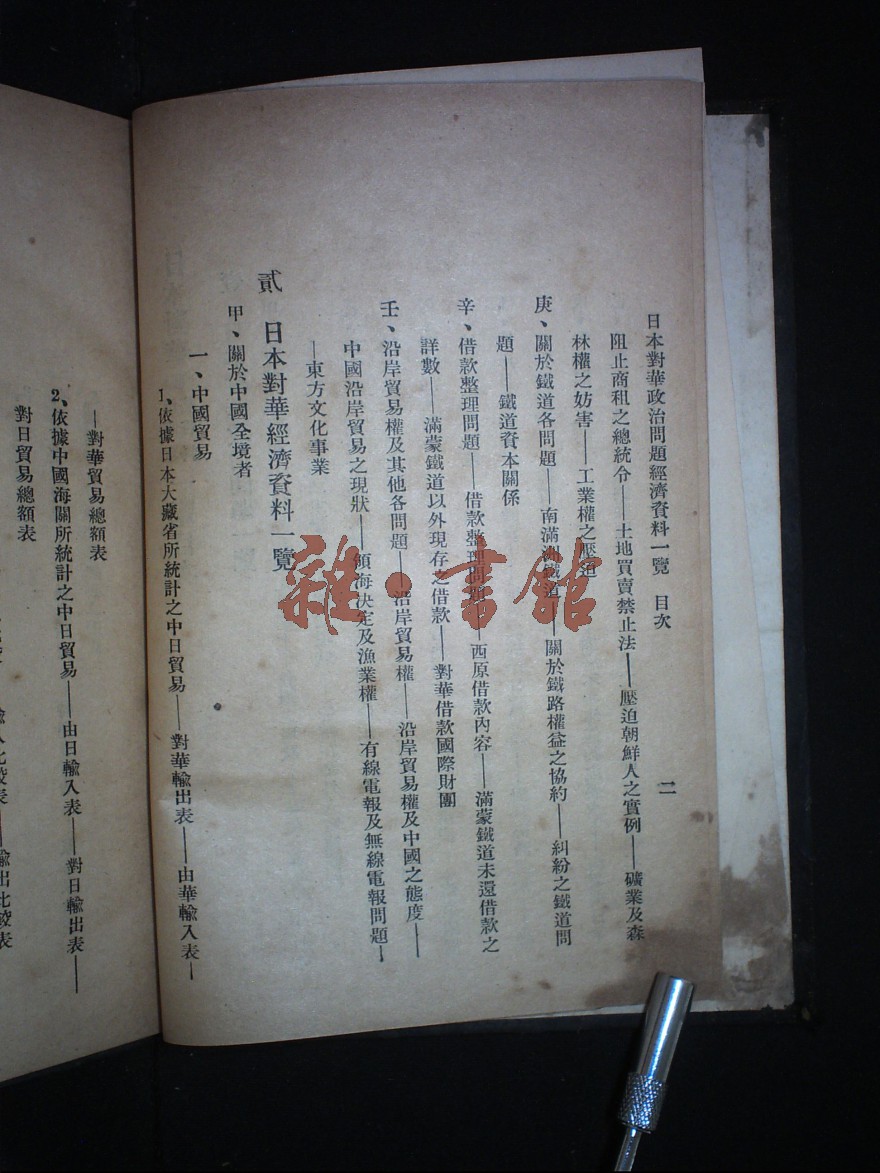 日本對華政治問題經濟資料一覽　目次　二
阻止商租之總統令——土地買賣禁止法——壓迫朝鮮人之實例——礦業及森
林權之妨害——工業權之壓迫
庚、關於鐵道各問題——南滿洲鐵道——關於鐵路權益之協約——糾紛之鐵道問
題——鐵道資本關係
辛、借款整理問題——借款整理問題——西原借款內容——滿蒙鐵道未還借款之
詳數——滿蒙鐵道以外現存之借款——對華借款國際財團
壬、沿岸貿易權及其他各問題——沿岸貿易權——沿岸貿易權及中國之態度——
中國沿岸貿易之現狀——領海決定及漁業權——有線電報及無線電報問題—
—東方文化事業
貳　日本對華經濟資料一覽
甲、關於中國全境者
一、中國貿易
1、依據日本大藏省所統計之中日貿易——對華輸出表——由華輸入表—
—對華貿易總額表
2、依據中國海關所統計之中日貿易——由日輸入表——對日輸出表——
對日貿易總額表
輸入比較表——輸出比較表
雜·書館